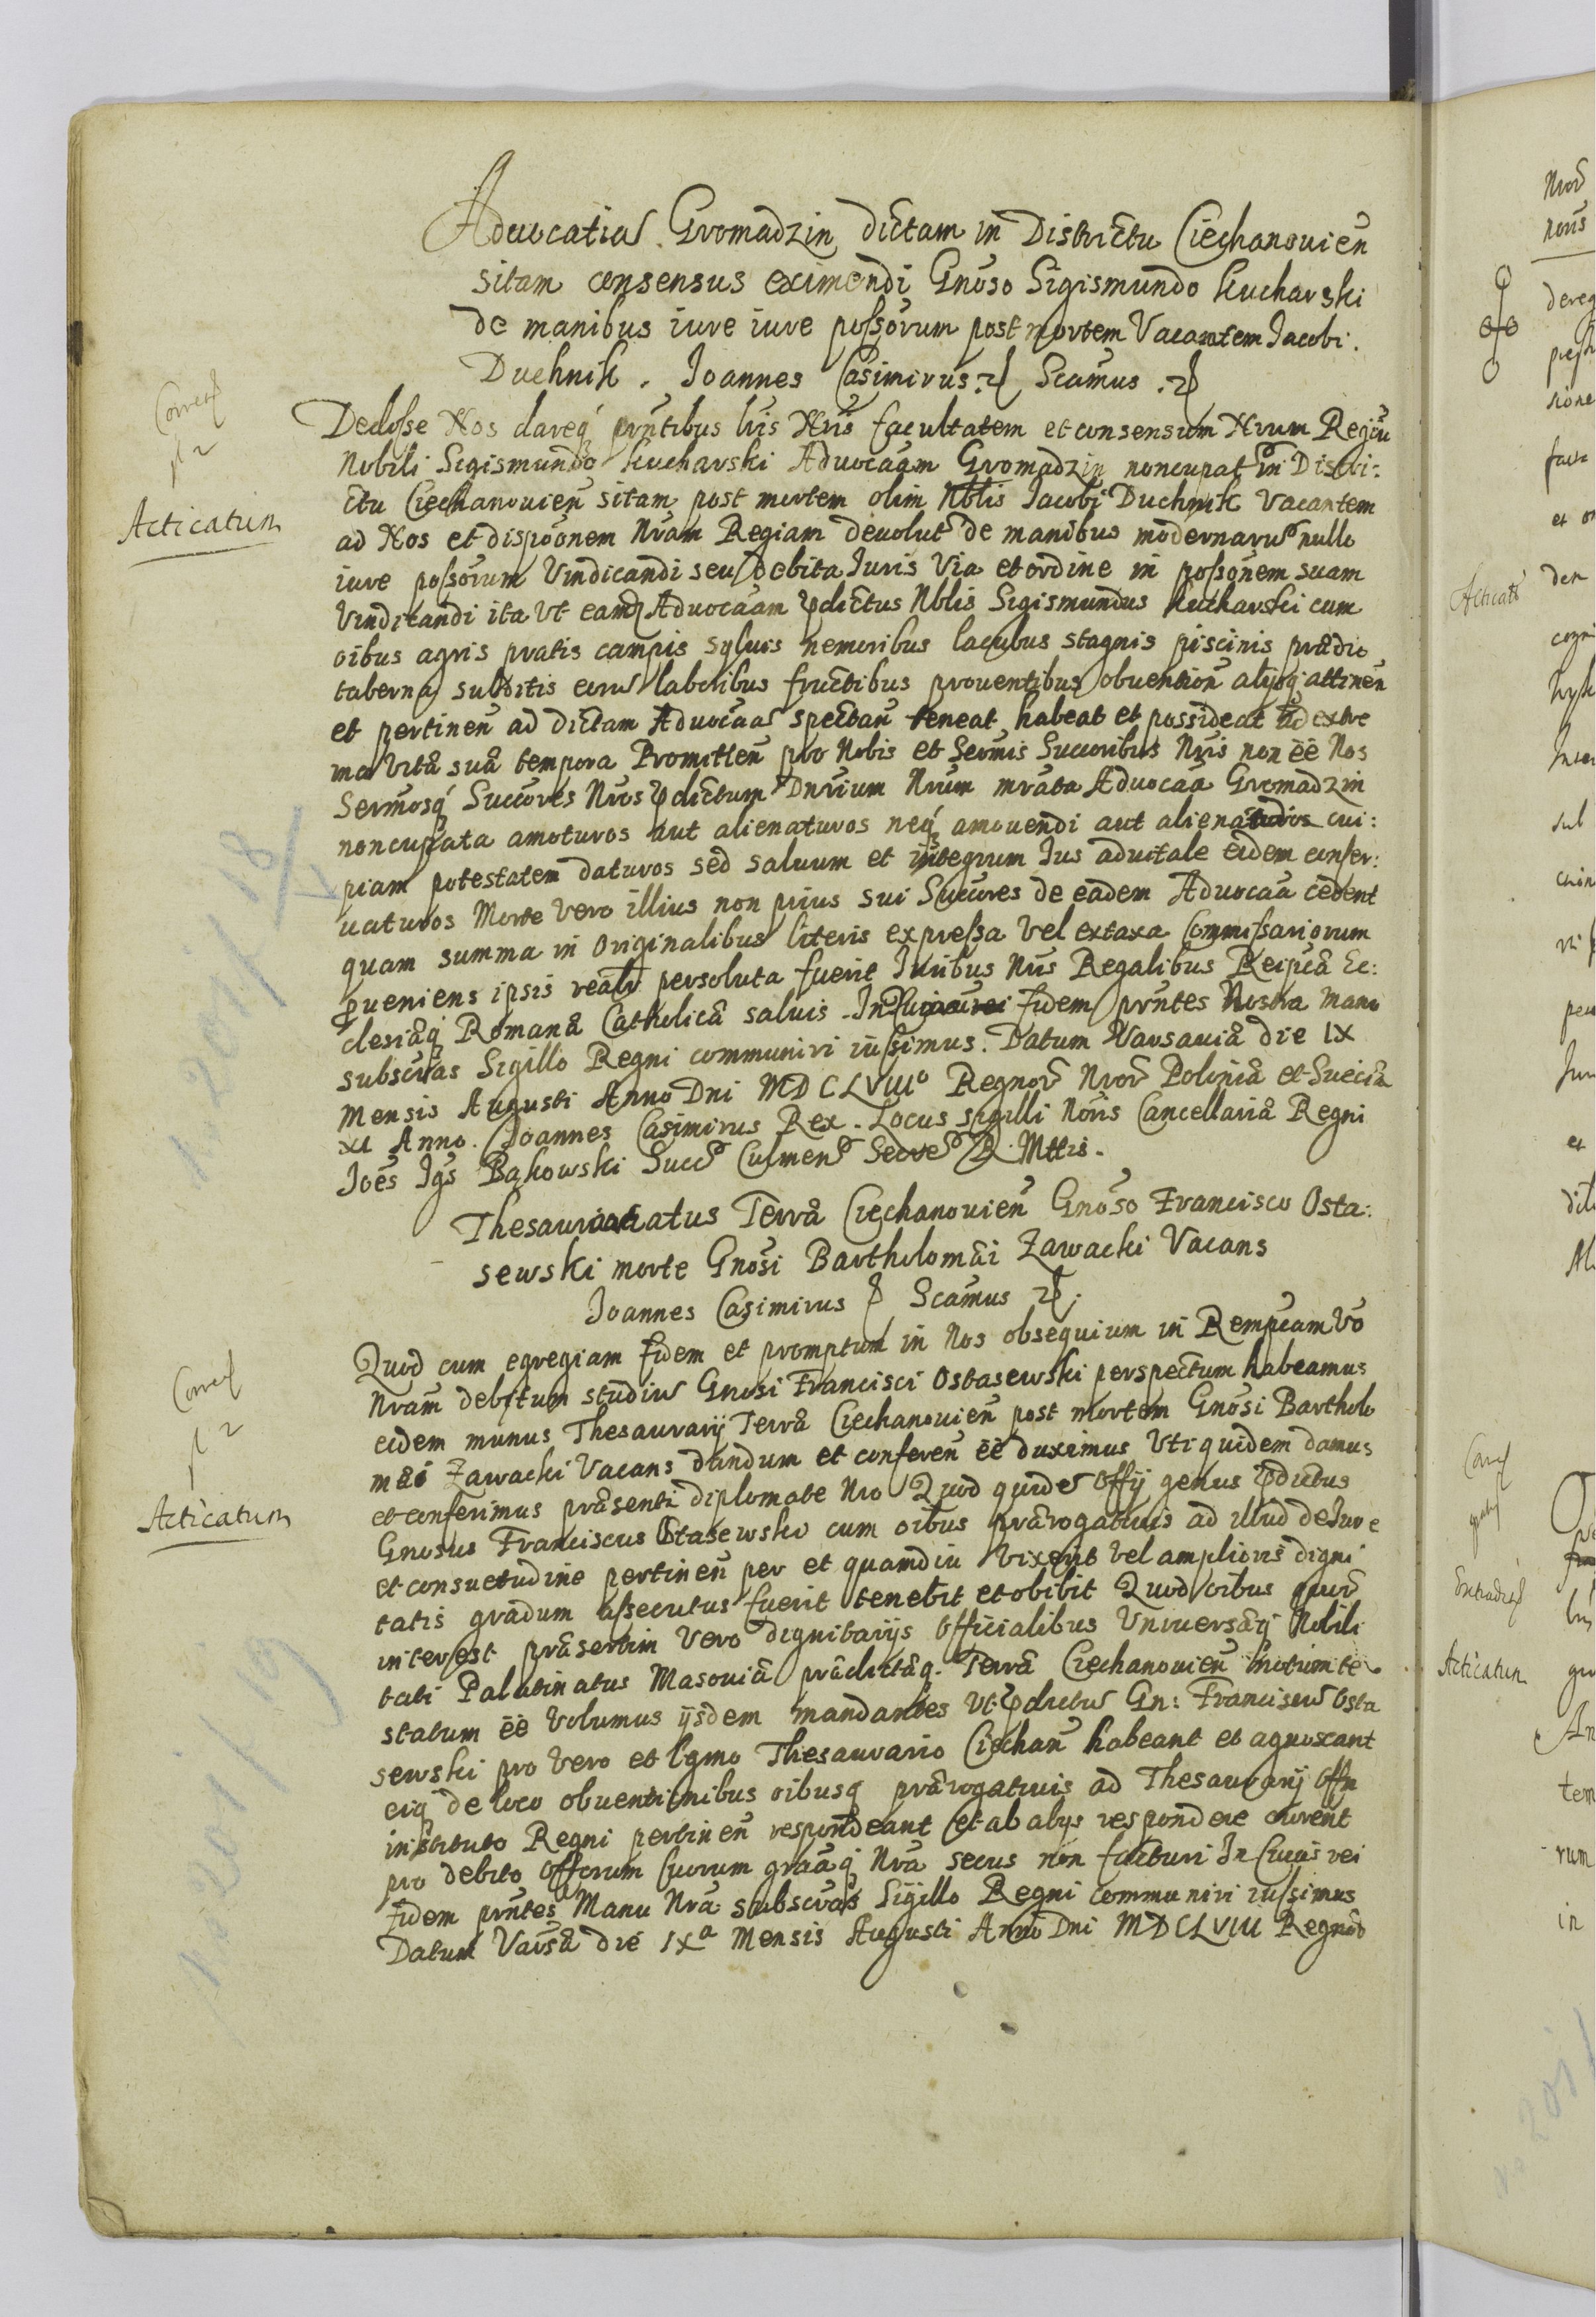 Aduocatiam Gromadzin dictam in Districtu Ciechanouien̄
sitam consensus eximendi Gnoso Sigismundo Kucharski
de manibus iure iure possorum post mortem Vacantem Jacobi
Duchnik. Joannes Casimirus Scamus
Correct
Dedisse Nos dareq prntibus lris Nris facultatem et consensum Nrum Regiu
Nobili Sigismundo Kucharski Aduocaam Gromadzin noncupat In Distri:
Acticatum
ctu Ciechanouien sitam post mortem olim Nblis Jacobi Duchnik Vacantem
ad Nos et dispoonem Nram Regiam deuolut de manibus modernaru nullo
iure possorum Vindicandi seu debita Juris Via et ordine in possonem suam
Vindicandi ita Vt eam Aduocaam pdictus Nblis Sigismundus Kucharski cum
oibus agris pratis campis syluis nemoribus lacubus stagnis piscinis prædio
taberna subditis eoru laboribus fructibus prouentibus obuention alysq attinen
et pertinen ad dictam Aduocaam spectan teneat habeat et possideat ad extre
ma vitæ suæ tempora Promitten pro Nobis et Sermis Succoribus Nris non ee Nos
Sermosq Succores Nros pdictum Nrum mrata Aduocaa Gromadzin
noncupata amoturos aut alienaturos neq amouendi aut alienandi cui:
piam potestatem daturos sed saluum et integrum Jus aduitale eidem conser:
uaturos Morte Vero illius non prius sui Succores de eadem Aduocaa cedent
quam summa in Originalibus literis expressa Vel ex taxa Commissariorum
pueniens ipsis realr persoluta fuerit Juribus Nris Regalibus Reipcæ Ec:
clesiæq Romanæ Catholicæ saluis. In Cuius rei fidem prntes Nostra manu
subscrtas Sigillo Regni communiri iussimus. Datum Varsauiæ die IX
Mensis Augusti Anno Dni MDCLVIIIo Regnor Nror Poloniæ et Sueciæ
XI Anno. Joannes Casimirus Rex. Locus sigilli Noris Cancellariæ Regni
Joes Igs Bąkowski Succ Culmen Secre R. Mttis.
Thesaurariatus Terræ Ciechanouien Gnoso Francisco Osta:
sewski morte Gnosi Bartholomæi Zawacki Vacans
Joannes Casimirus Scamus
Correct
Quod cum egregiam fidem et promptum in Nos obsequium in Rempcam Vo
Nram debitum studiu Gnosi Francisci Ostasewski perspectum habeamus
eidem munus Thesaurarij Terræ Ciechanouien post mortem Gnosi Bartholo
mæi Zawacki Vacans dandum et conferen ee duximus Vti quidem damus
Acticatum
et conferimus præsenti diplomate Nro Quod quide Offij genus pdictus
Gnosus Franciscus Ostasewski cum oibus prærogatiuis ad illud de Jure
et consuetudine pertinen per et quamdiu Vixerit Vel amplioris digni
tatis gradum assecutus fuerit tenebit et obibit Quod oibus quor
interest præsertim Vero dignitarijs Officialibus Vniuersæq Nobili
tati Palatinatus Masouiæ prædictæq Terræ Ciechanouien notum te
statum ee Volumus ijsdem mandantes Vt pdictu Gn: Franciscu Osta
sewski pro Vero et lgmo Thesaurario Ciechan habeant et agnoscant
eiq de loco obuentionibus oibusq prærogatiuis ad Thesaurarij Offm
instituto Regni pertinen respondeant et ab alys respondere curent
pro debito Officrum suorum graaq Nra secus non facturi In Cuius rei
fidem prntes Manu Nra subscrtas Sigillo Regni communiri iussimus
Datum Varsæ die IXa Mensis Augusti Anno Dni MDCLVIII Regnor
Nror
Noris
Acticatum
Acticatum